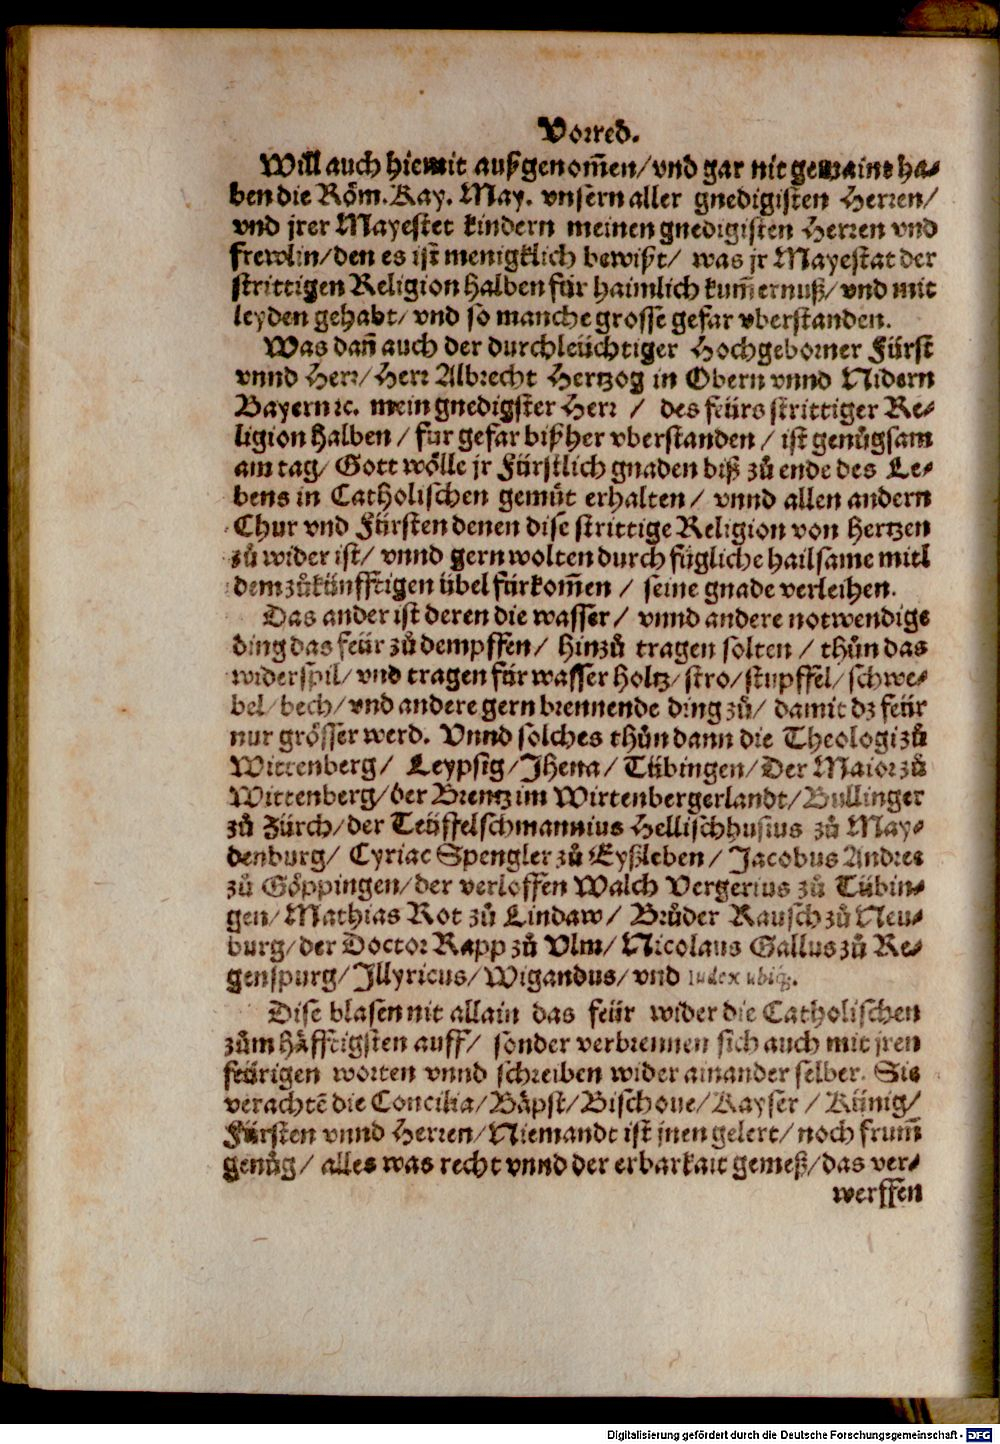 Vorred.
Will auch hiemit außgenom̄en/ vnd gar nit gemaint ha-
ben die Röm. Kay. May. vnsern aller gnedigisten Herren/
vnd jrer Mayestet kindern meinen gnedigisten Herren vnd
frewlin/ den es ist menigklich bewißt/ was jr Mayestat der
strittigen Religion halben für haimlich kum̄ernuß/ vnd mit
leyden gehabt/ vnd so manche grosse gefar vberstanden.
Was dañ auch der durchleüchtiger Hochgeborner Fürst
vnnd Herr/ Herr Albrecht Hertzog in Obern vnnd Nidern
Bayern ꝛc. mein gnedigster Herr / des feürs strittiger Re-
ligion halben / fur gefar bißher vberstanden / ist genůgsam
am tag/ Gott wölle jr Fürstlich gnaden biß zů ende des Le-
bens in Catholischen gemüt erhalten/ vnnd allen andern
Chur vnd Fürsten denen dise strittige Religion von hertzen
zů wider ist/ vnnd gern wolten durch fügliche hailsame mitl
dem zůkünfftigen übel fürkom̄en / seine gnade verleihen.
Das ander ist deren die wasser / vnnd andere notwendige
ding das feür zů dempffen/ hinzů tragen solten / thůn das
widerspil/ vnd tragen für wasser holtz/ stro/ stupffel/ schwe-
bel/ bech/ vnd andere gern brennende ding zů/ damit dz feür
nur grösser werd. Vnnd solches thůn dann die Theologi zů
Wittenberg/ Leypsig/ Jhena/ Tübingen/ Der Maior zů
Wittenberg/ der Brentz im Wirtenbergerlandt/ Bullinger
zů Zürch/ der Teüffelschmannius Hellischhusius zů May-
denburg/ Cyriac Spengler zů Eyßleben/ Jacobus Andres
zů Göppingen/ der verloffen Walch Vergerius zů Tübin-
gen/ Mathias Rot zů Lindaw/ Brůder Rausch zů Neu-
burg/ der Doctor Rapp zů Vlm/ Nicolaus Gallus zů Re-
genspurg/ Jllyricus/ Wigandus/ vnd
Dise blasen nit allain das feür wider die Catholischen
zům häfftigsten auff/ sonder verbrennen sich auch mit jren
feürigen worten vnnd schreiben wider ainander selber. Sie
verachtē die Concilia/ Bäpst/ Bischoue/ Kayser / Künig/
Fürsten vnnd Herren/ Niemandt ist jnen gelert/ noch frum̄
genůg/ alles was recht vnnd der erbarkait gemeß/ das ver-
werffen
Digitalisierung gefördert durch die Deutsche Forschungsgemeinschaft - DFG